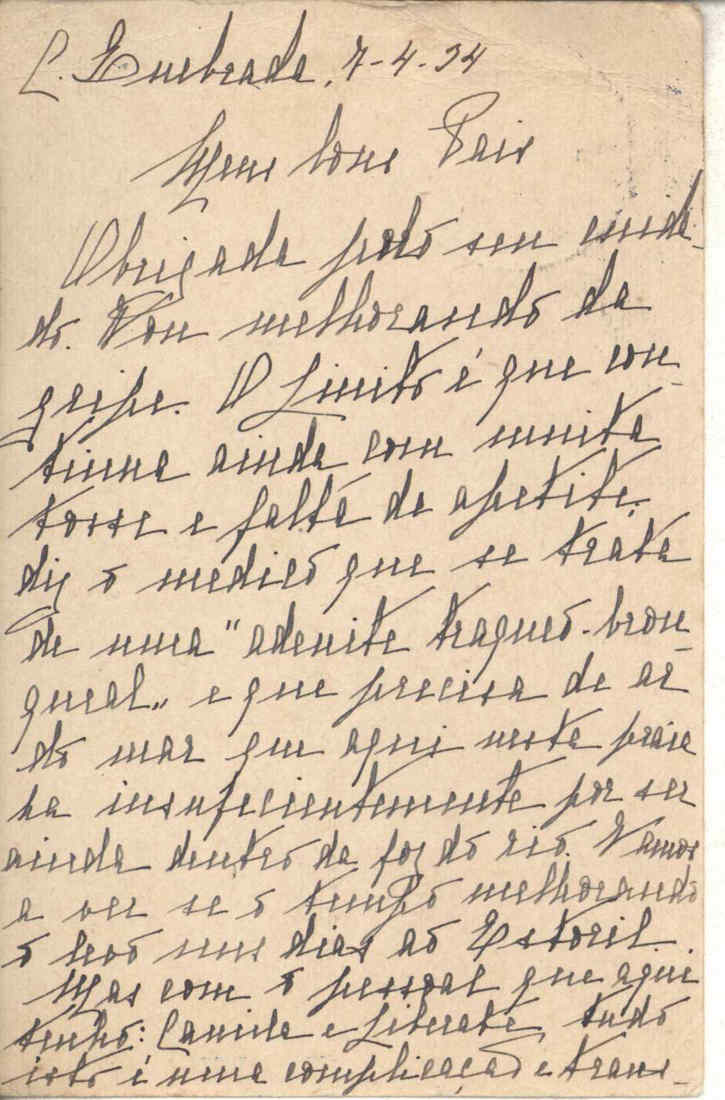 C. Quebrada, 7-4-34
Meus bons Pais
Obrigada pelo seu cuida-
do. Vou melhorando da
gripe. O Luizito é que con-
tinua ainda com muita
tosse e falta de apetite.
diz o medico que se trata
de uma "adenite traqueo-bron-
queal" e que precisa de ar
do mar que aqui nesta praia
ha insuficientemente por ser
ainda dentro da foz do rio. Vamos
a ver se o tempo melhorando
o levo uns dias ao Estoril.
Mas com o pessoal que aqui
tenho: e tudo
isto é uma complicação e trans-